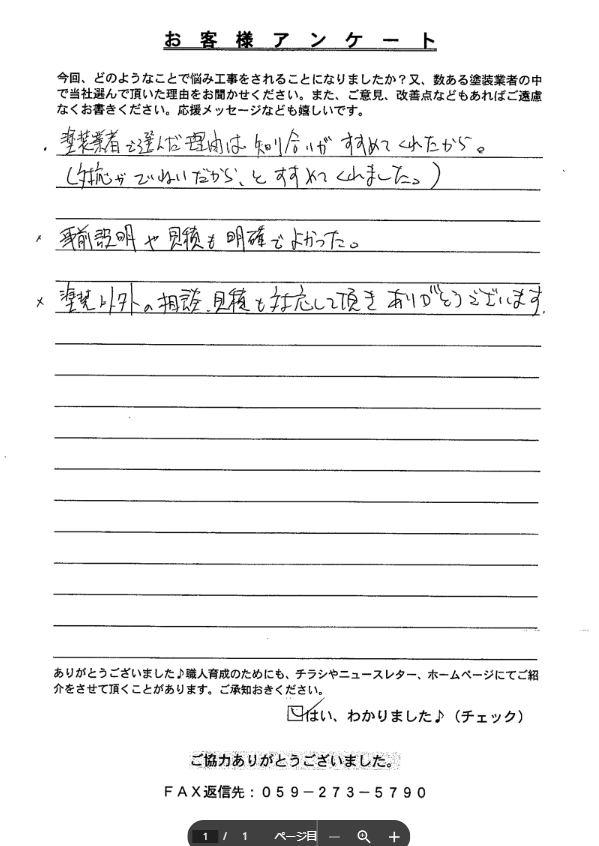 お客様アンケート
今回、どのようなことで悩み工事をされることになりましたか？又、数ある塗装業者の中
で当社選んで頂いた理由をお聞かせください。また、ご意見、改善点などもあればご遠慮
なくお書きください。応援メッセージなども嬉しいです。
・塗装業者で選んだ理由は知り合いがすすめてくれたから。
(対応がていねいだから、とすすめてくれました。)
× 事前説明や見積も明確でよかった。
× 塗装以外の相談、見積も対応して頂きありがとうございます。
ありがとうございました♪職人育成のためにも、チラシやニュースレター、ホームページにてご紹
介をさせて頂くことがあります。ご承知おきください。
☑はい、わかりました♪（チェック）
ご協力ありがとうございました。
ＦＡＸ返信先：０５９－２７３－５７９０
1 / 1 ページ目 － ＋